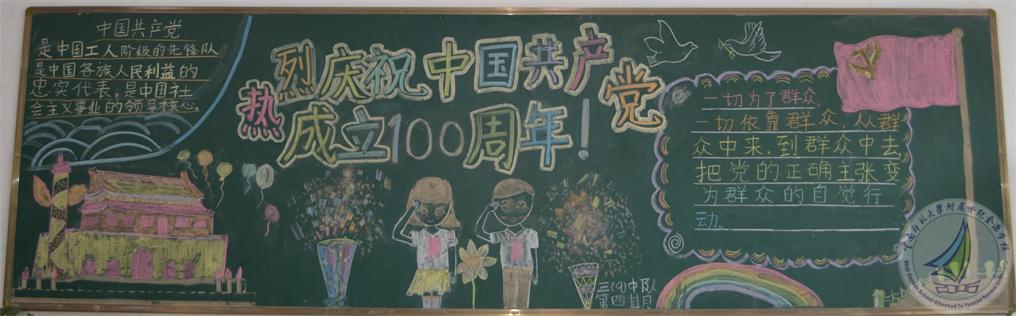 中国共产党
是中国工人阶级的先锋队
是中国各族人民利益的
忠实代表,是中国社
会主义事业的领导核心。
热烈庆祝中国共产党
成立100周年!
一切为了群众,
一切依靠群众,从群
众中来,到群众中去
把党的正确主张变
为群众的自觉行
动。
三(9)中队
第四期